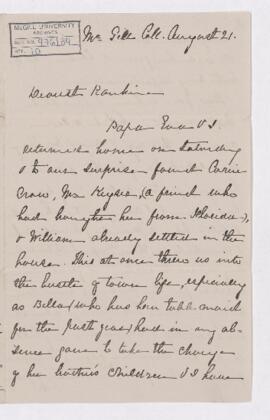 McGILL UNIVERSITY
ARCHIVES
ACC. NO.
REF.
McGill Col. August 21.
Dearest Rankine
Papa Eva & I
returned home on Saturday
& to our surprise found Carrie
Crow, Mr Keyser, (a friend who
had brought her from Florida),
& William already settled in the
house. This at once threw us into
the bustle of town life, especially
as Bella, who has been table maid
for the past year, had in my ab-
sence gone to take the charge
of her brother's children & I have